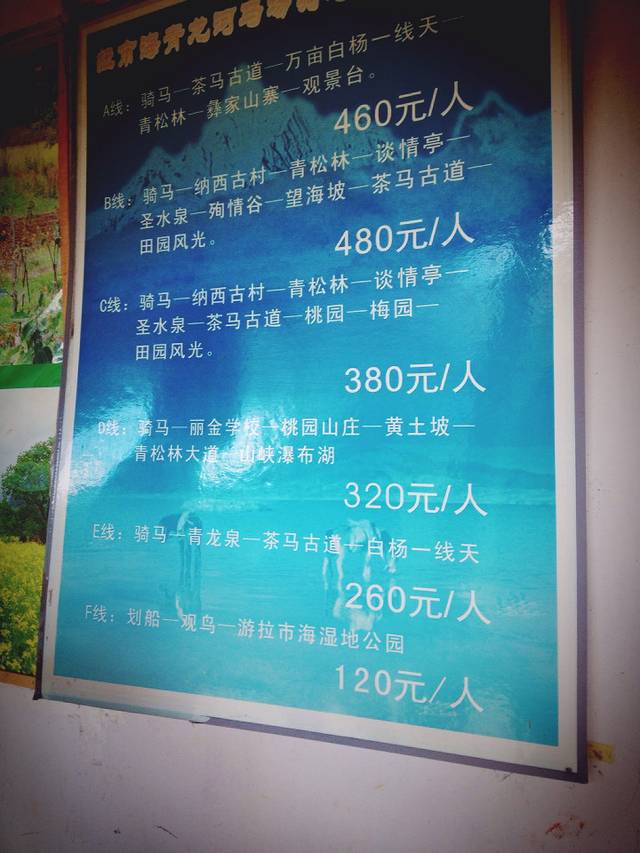 拉市海青龙河马场
A线：骑马—茶马古道—万亩白杨一线天—
青松林—彝家山寨—观景台。
460元/人
B线：骑马—纳西古村—青松林—谈情亭—
圣水泉—殉情谷—望海坡—茶马古道—
田园风光。
480元/人
C线：骑马—纳西古村—青松林—谈情亭—
圣水泉—茶马古道—桃园—梅园—
田园风光。
380元/人
D线：骑马—丽金学校—桃园山庄—黄土坡—
青松林大道—山峡瀑布湖
320元/人
E线：骑马—青龙泉—茶马古道—白杨一线天
260元/人
F线：划船—观鸟—游拉市海湿地公园
120元/人